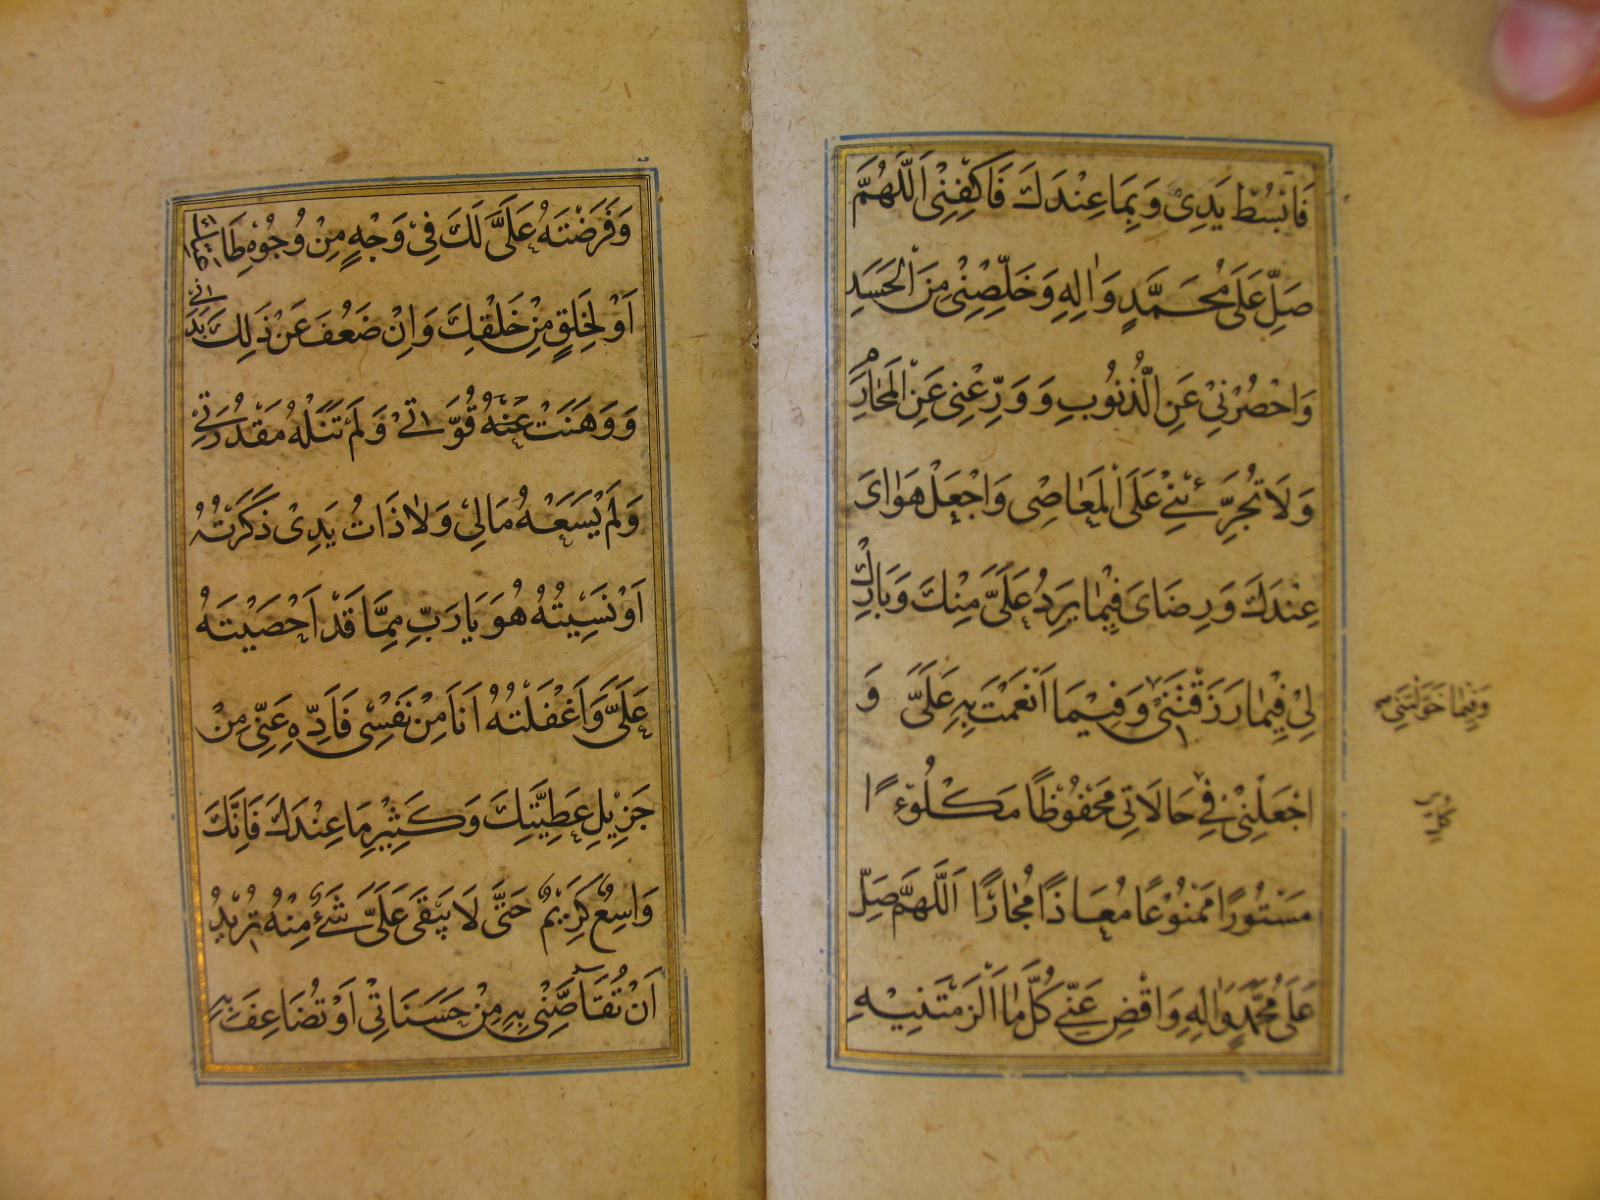 فَابْسُطْ يَدِىْ وَبِمَا عِنْدَكَ فَاكْفِنِىْ اَللّٰهُمَّ
صَلِّ عَلٰى مُحَمَّدٍ وَاٰلِهِ وَخَلِّصْنِىْ مِنَ الْحَسَدِ
وَاحْصُرْنِىْ عَنِ الذُّنُوبِ وَوَرِّعْنِىْ عَنِ الْمَحَارِمِ
وَلَا تُجَرِّئْنِىْ عَلَى الْمَعَاصِى وَاجْعَلْ هَوَاىَ
عِنْدَكَ وَرِضَاىَ فِيْمَا يَرِدُ عَلَىَّ مِنْكَ وَبَارِكْ
لِىْ فِيْمَا رَزَقْتَنِىْ وَفِيْمَا اَنْعَمْتَ بِهِ عَلَىَّ وَ
وَفِيْمَا خَوَّلْتَنِىْ
اجْعَلْنِىْ فِىْ حَالَاتِىْ مَحْفُوْظًا مَكْلُوْءًا
مَسْتُورًا مَمْنُوْعًا مُعَاذًا مُجَارًا اَللّٰهُمَّ صَلِّ
عَلٰى مُحَمَّدٍ وَاٰلِهِ وَاقْضِ عَنِّىْ كُلَّ مَا اَلْزَمْتَنِيْهِ
وَفَرَضْتَهُ عَلَىَّ لَكَ فِىْ وَجْهٍ مِنْ وُجُوْهِ طَاعَتِكَ
اَوْ لِخَلْقٍ مِنْ خَلْقِكَ وَاِنْ ضَعُفَ عَنْ ذٰلِكَ بَدَنِىْ
وَوَهَنَتْ عَنْهُ قُوَّتِىْ وَلَمْ تَنَلْهُ مَقْدُرَتِىْ
وَلَمْ يَسَعْهُ مَالِىْ وَلَا ذَاتُ يَدِىْ ذَكَرْتُهُ
اَوْ نَسِيْتُهُ هُوَ يَا رَبِّ مِمَّا قَدْ اَحْصَيْتَهُ
عَلَىَّ وَاَغْفَلْتُهُ اَنَا مِنْ نَفْسِىْ فَاَدِّهِ عَنِّىْ مِنْ
جَزِيْلِ عَطِيَّتِكَ وَكَثِيْرِ مَا عِنْدَكَ فَاِنَّكَ
وَاسِعٌ كَرِيْمٌ حَتّٰى لَا يَبْقٰى عَلَىَّ شَىْءٌ مِنْهُ تُرِيْدُ
اَنْ تُقَاصَّنِىْ بِهِ مِنْ حَسَنَاتِىْ اَوْ تُضَاعِفَ بِهِ